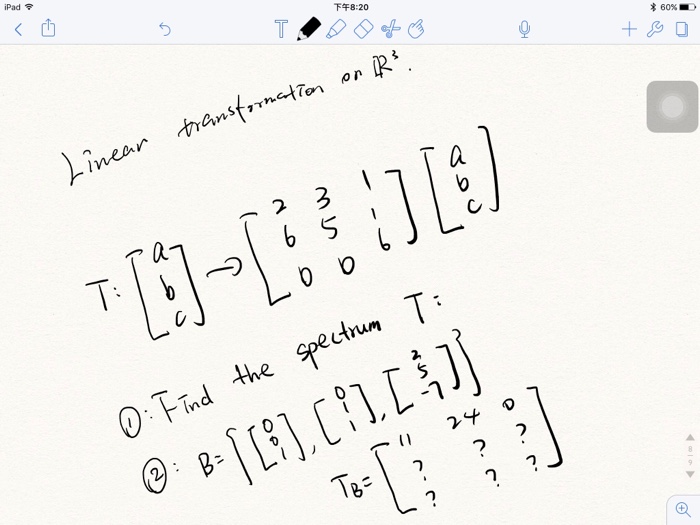 iPad 下午8:20 60%
T
Linear transformation on ℝ³.
T: [a b c] → [2 3 1 6 5 1 0 0 6] [a b c]
①: Find the spectrum T:
②: B = {[0 0 1], [0 1 1], [2 5 -7]}
T_B = [11 24 0 ? ? ? ? ? ?]
8
9